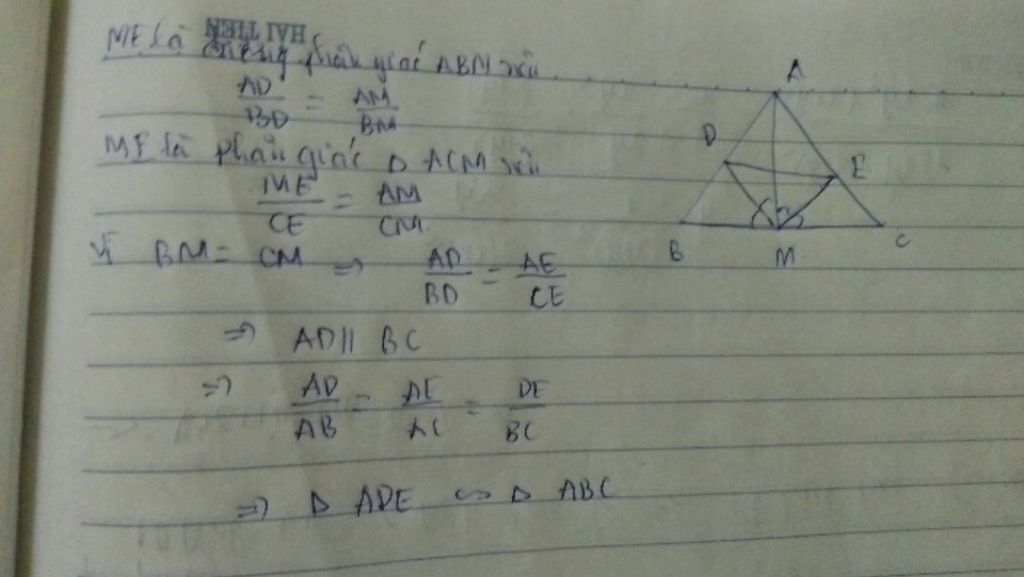 HAI TIEN
ME là đường phân giác ABM nên
AD/BD = AM/BM
ME là phân giác Δ ACM nên
ME/CE = AM/CM
Vì BM = CM => AD/BD = AE/CE
=> AD || BC
=> AD/AB = AE/AC = DE/BC
=> Δ ADE ∽ Δ ABC
A
D
E
B
M
C